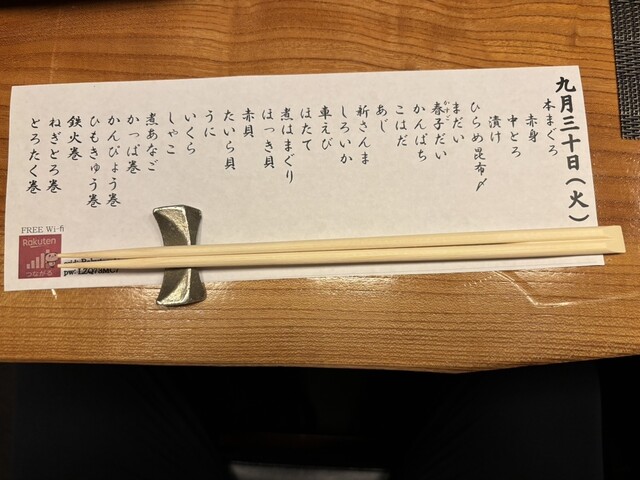 九月三十日（火）
本まぐろ
赤身
中とろ
漬け
ひらめ昆布〆
まだい
春子だい
かすご
かんぱち
こはだ
あじ
新さんま
しろいか
車えび
ほたて
煮はまぐり
ほっき貝
赤貝
たいら貝
うに
いくら
しゃこ
煮あなご
かっぱ巻
かんぴょう巻
ひもきゅう巻
鉄火巻
ねぎとろ巻
とろたく巻
FREE Wi-fi
Rakuten
つながる